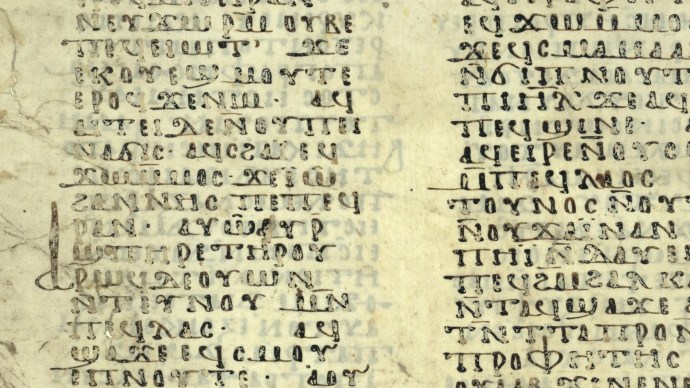 ⲛⲉⲩϫⲱⲣⲙⲟⲩⲃⲉ
ⲡⲉϥⲉⲓⲱⲧ· ϫⲉ
ⲉⲕⲟⲩⲉϣⲙⲟⲩⲧⲉ
ⲉⲣⲟϥϫⲉⲛⲓⲙ· ⲁϥ
ⲁⲓⲧⲉⲓⲇⲉⲛⲟⲩⲡⲉⲓ
ⲛⲁϭⲓⲥ· ⲁϥⲥϩⲁⲓⲉϥ
ϫⲱⲙⲙⲟⲥ·ϫⲉⲓⲱ̅
ϩⲁⲛⲛⲏⲥ ⲡⲉⲡⲉϥ
ⲣⲁⲛ· ⲁⲩⲱⲁⲩⲣ̅
ϣⲡⲏⲣⲉⲧⲏⲣⲟⲩ
ⲣⲱϥⲇⲉⲟⲩⲱⲛ
ⲛⲧⲉⲩⲛⲟⲩ ⲙⲛ̅
ⲡⲉϥⲗⲁⲥ· ⲁϥ
ϣⲁϫⲉⲉϥⲥⲙⲟⲩ
ⲉⲡⲛⲟⲩⲧⲉ· ⲁⲟⲩ
ⲉϥϫⲱⲙⲙⲟⲥ
ϫⲉϥⲥⲙⲁⲙⲁⲁ
ⲛϭⲓⲡⲛⲟⲩⲧ
ⲡⲓⲏ̅ⲗ̅ϫⲉⲁϥ
ⲡⲉϥϣⲓⲛⲉ·
ⲁϥⲉⲓⲣⲉⲛⲟⲩⲥⲱ
ⲙ̅ⲡⲉϥⲗⲁⲟⲥ
ⲧⲟⲩⲛⲟⲥⲛ̅ⲟⲩ
ⲛⲟⲩϫⲁⲓ̈ⲛⲁⲛ
ⲡⲏⲓ̈ⲛ̅ⲇⲁⲩⲉⲓ
ⲡⲉϥϩⲙϩⲁⲗ
ⲛ̅ⲧⲁϥϣⲁϫⲉ
ⲧⲛ̅ⲧⲧⲁⲡⲣⲟⲛ
ⲡⲣⲟⲫⲏⲧⲏⲥ